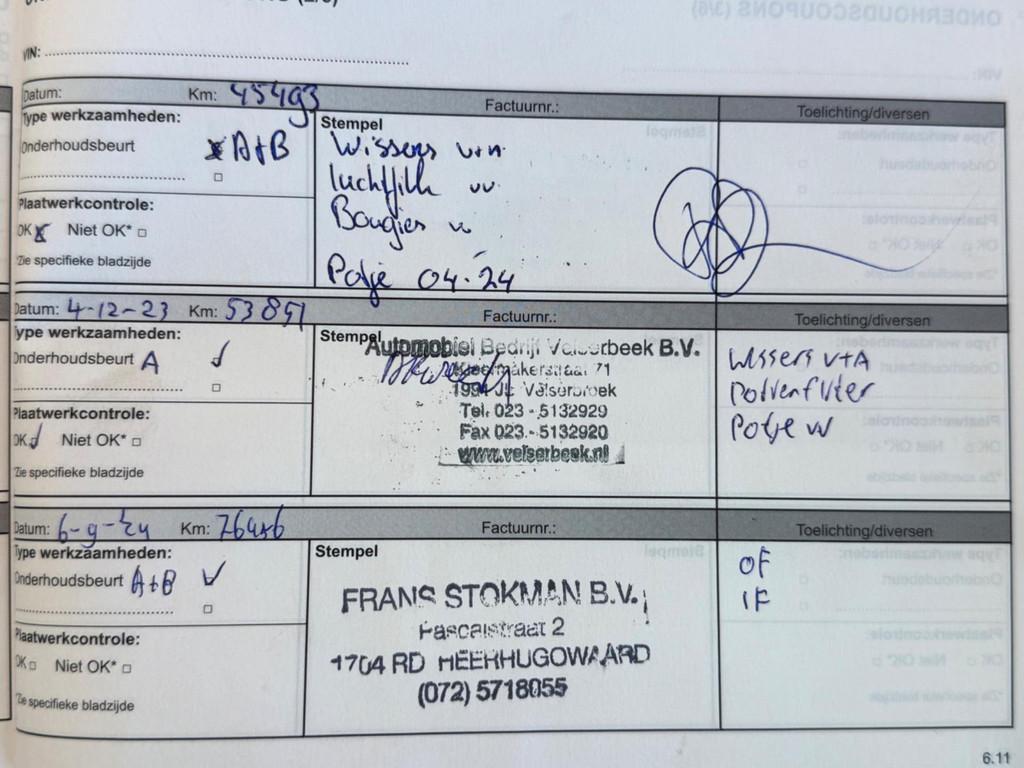 VIN:
Datum: Km: 45493 Factuurnr.: Toelichting/diversen
Type werkzaamheden:
Onderhoudsbeurt A+B
Plaatwerkcontrole:
OK Niet OK*
*Zie specifieke bladzijde
Stempel
Wissers v+n
luchtfilth vv
Bougies vv
Potje 04-24
Datum: 4-12-23 Km: 53851 Factuurnr.: Toelichting/diversen
Type werkzaamheden:
Onderhoudsbeurt A
Plaatwerkcontrole:
OK Niet OK*
*Zie specifieke bladzijde
Stempel
Automobiel Bedrijf Velserbeek B.V.
71
Velserbroek
Tel. 023 - 5132929
Fax 023 - 5132920
www.velserbeek.nl
Wissers V+A
Pollenfilter
Potje W
Datum: 6-9-24 Km: Factuurnr.: Toelichting/diversen
Type werkzaamheden:
Onderhoudsbeurt A+B
Plaatwerkcontrole:
OK Niet OK*
*Zie specifieke bladzijde
Stempel
FRANS STOKMAN B.V.
Pascalstraat 2
1704 RD HEERHUGOWAARD
(072) 5718055
OF
IF
6.11